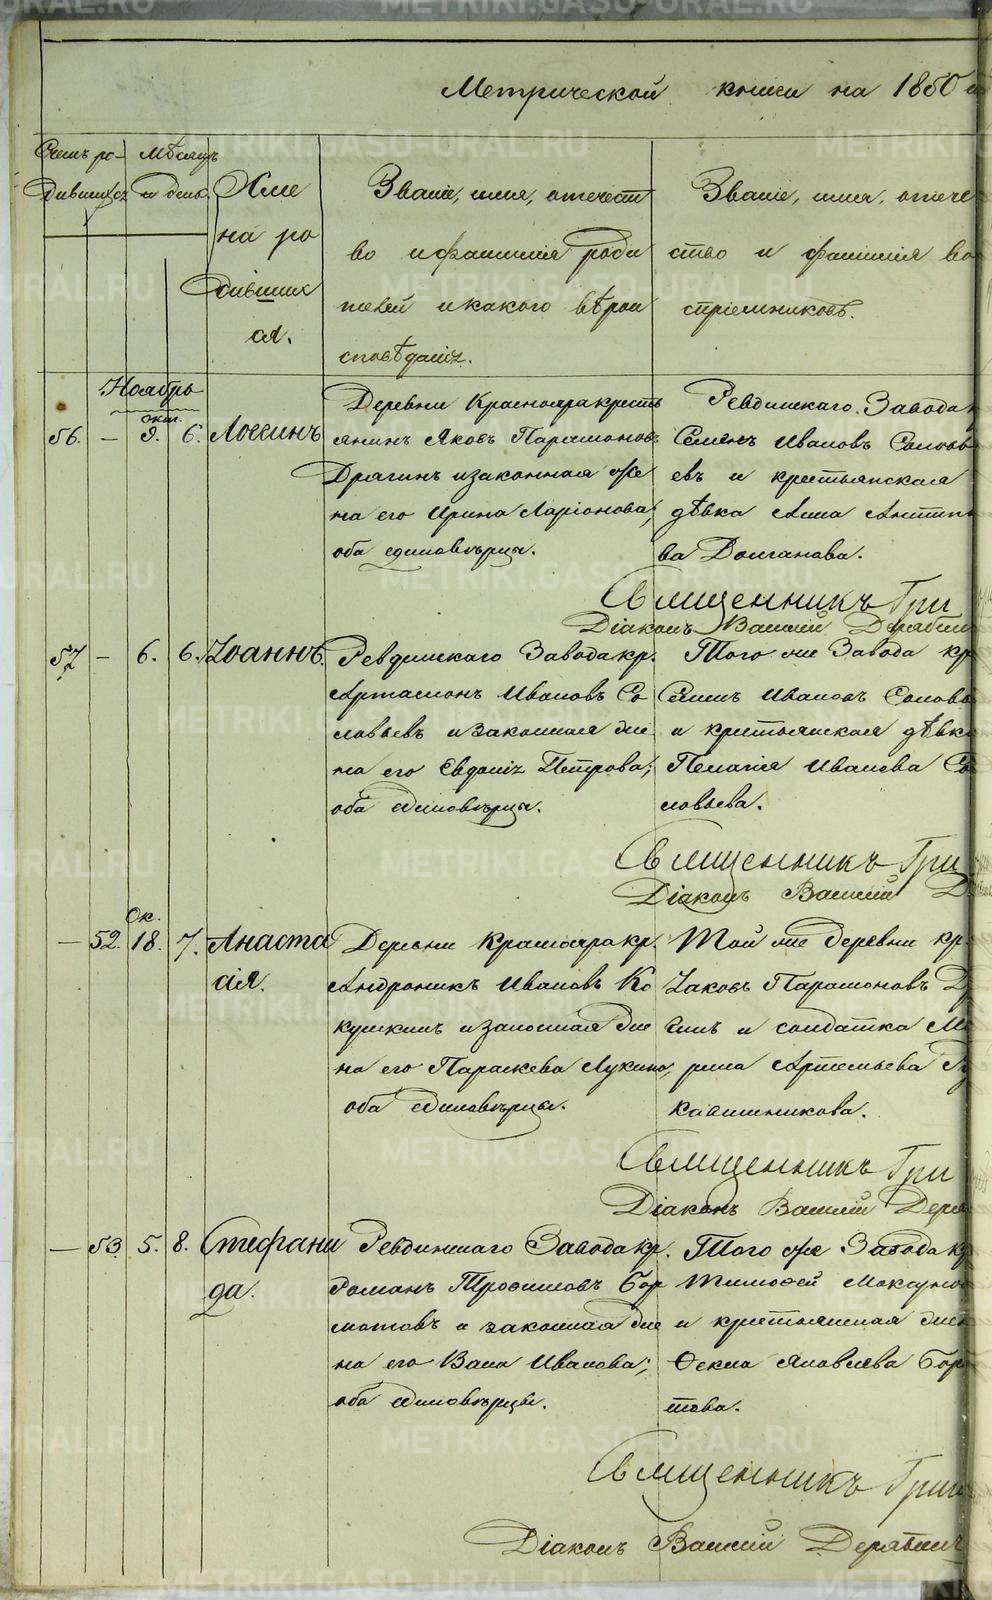 Метрической книги на 1850
Счетъ ро- Мѣсяцъ
дившихся и день.
Име
на ро
дивших
ся.
Званіе, имя, отчест
во и фамилія роди
телей и какого вѣрои
сповѣданія.
Званіе, имя, отече
ство и фамилія во
спріемниковъ.
Ноябрь
окт.
56. — 9. 6. Логгинъ
Деревни Краснояра кресть
янинъ Яковъ Парамоновъ
Драгинъ и законная же
на его Ирина Ларіонова;
оба единовѣрцы.
Ревдинскаго Завода
Семенъ Ивановъ Солов
евъ и крестьянская
дѣвка Анна Антипо
ва Долганова.
Священникъ Гри
Діаконъ Василій Дерябин
57. — 6. 6. Іоаннъ.
Ревдинскаго Завода кр.
Артамонъ Ивановъ Со
ловьевъ и законная же
на его Евдокія Петрова;
оба единовѣрцы.
Того же Завода кр
Семенъ Ивановъ Солов
и крестьянская дѣвка
Пелагія Иванова Со
ловьева.
Священникъ Гри
Діаконъ Василій Д
Ок.
— 52. 18. 7. Анаста
сія.
Деревни Краснояра кр.
Андроникъ Ивановъ Ко
кушкинъ и законная же
на его Параскева Лукина,
оба единовѣрцы.
Той же деревни кр.
Іаковъ Парамоновъ Др
гинъ и солдатка Ма
рина Артемьева Лу
кашинникова.
Священникъ Гри
Діаконъ Василій Деря
— 53. 5. 8. Стефани
да.
Ревдинскаго Завода кр.
Романъ Трофимовъ Бор
мотовъ и законная же
на его Васса Иванова;
оба единовѣрцы.
Того же Завода кр
Тимофей Максимов
и крестьянская жен
Фекла Яковлева Бор
това.
Священникъ Григ
Діаконъ Василій Дерябинъ